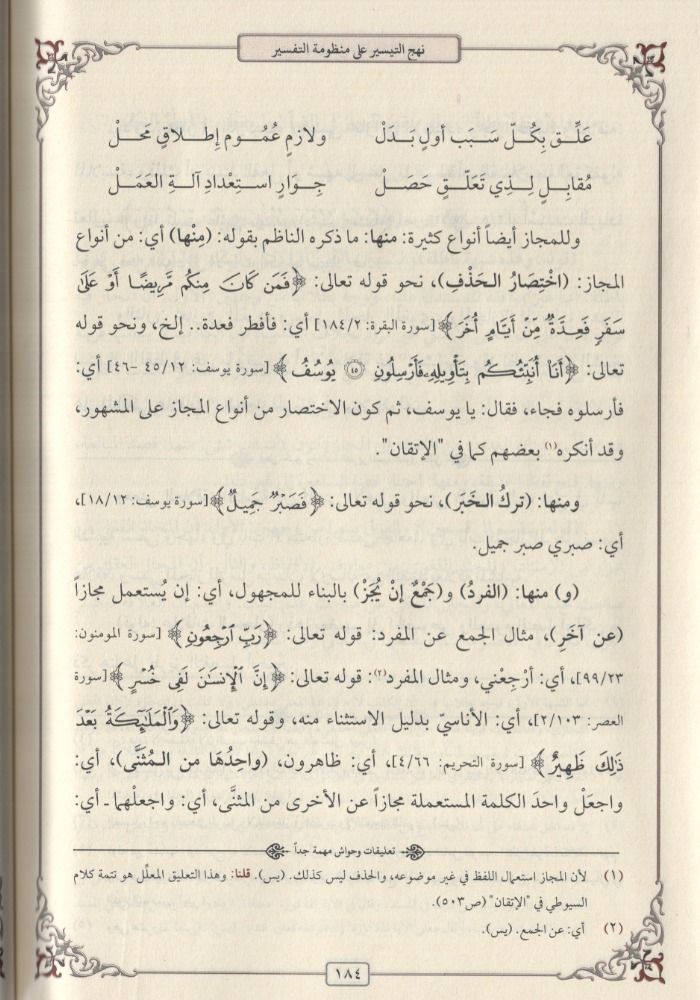 نهج التيسير على منظومة التفسير
عَلِّـق بِكُـلّ سَبَـب أولٍ بَـدَلْ ولازمٍ عُمُـوم إطـلاقٍ مَحـلْ
مُقابِـلٍ لِـذِي تَعَلُّـقٍ حَصَـلْ جِـوَارٍ استِعْـدادٍ آلـةِ العَمَـلْ
وللمجاز أيضاً أنواع كثيرة: منها: ما ذكره الناظم بقوله: (مِنْها) أي: من أنواع
المجاز: (اخْتِصَارُ الـحَذْفِ)، نحو قوله تعالى: ﴿فَمَن كَانَ مِنكُم مَّرِيضًا أَوْ عَلَىٰ
سَفَرٍ فَعِدَّةٌ مِّنْ أَيَّامٍ أُخَرَ﴾ [سورة البقرة: ١٨٤/٢] أي: فأفطر فعدة.. إلخ، ونحو قوله
تعالى: ﴿أَنَا۠ أُنَبِّئُكُم بِتَأْوِيلِهِۦ فَأَرْسِلُونِ ۝٤٥ يُوسُفُ﴾ [سورة يوسف: ٤٥/١٢ -٤٦] أي:
فأرسلوه فجاء، فقال: يا يوسف، ثم كون الاختصار من أنواع المجاز على المشهور،
وقد أنكره(١) بعضهم كما في "الإتقان".
ومنها: (تركُ الـخَبَر)، نحو قوله تعالى: ﴿فَصَبْرٌ جَمِيلٌ﴾ [سورة يوسف: ١٨/١٢]،
أي: صبري صبر جميل.
(و) منها: (الفردُ) و(جَمْعٌ إنْ يُجَزْ) بالبناء للمجهول، أي: إن يُستعمل مجازاً
(عن آخَرِ)، مثال الجمع عن المفرد: قوله تعالى: ﴿رَبِّ ٱرْجِعُونِ﴾ [سورة المومنون:
٩٩/٢٣]، أي: أرْجِعْني، ومثال المفرد(٢): قوله تعالى: ﴿إِنَّ ٱلْإِنسَٰنَ لَفِى خُسْرٍ﴾ [سورة
العصر: ٢/١٠٣]، أي: الأناسيّ بدليل الاستثناء منه، وقوله تعالى: ﴿وَٱلْمَلَٰٓئِكَةُ بَعْدَ
ذَٰلِكَ ظَهِيرٌ﴾ [سورة التحريم: ٤/٦٦]، أي: ظاهرون، (واحِدُهَا من الـمُثنَّى)، أي:
واجعَلْ واحدَ الكلمة المستعملة مجازاً عن الأخرى من المثنَّى، أي: واجعلْهما ـ أي:
تعليقات وحواش مهمة جداً
(١) لأن المجاز استعمال اللفظ في غير موضوعه، والحذف ليس كذلك. (يس). قلنا: وهذا التعليق المعلَّل هو تتمة كلام
السيوطي في "الإتقان" (ص٥٠٣).
(٢) أي: عن الجمع. (يس).
١٨٤